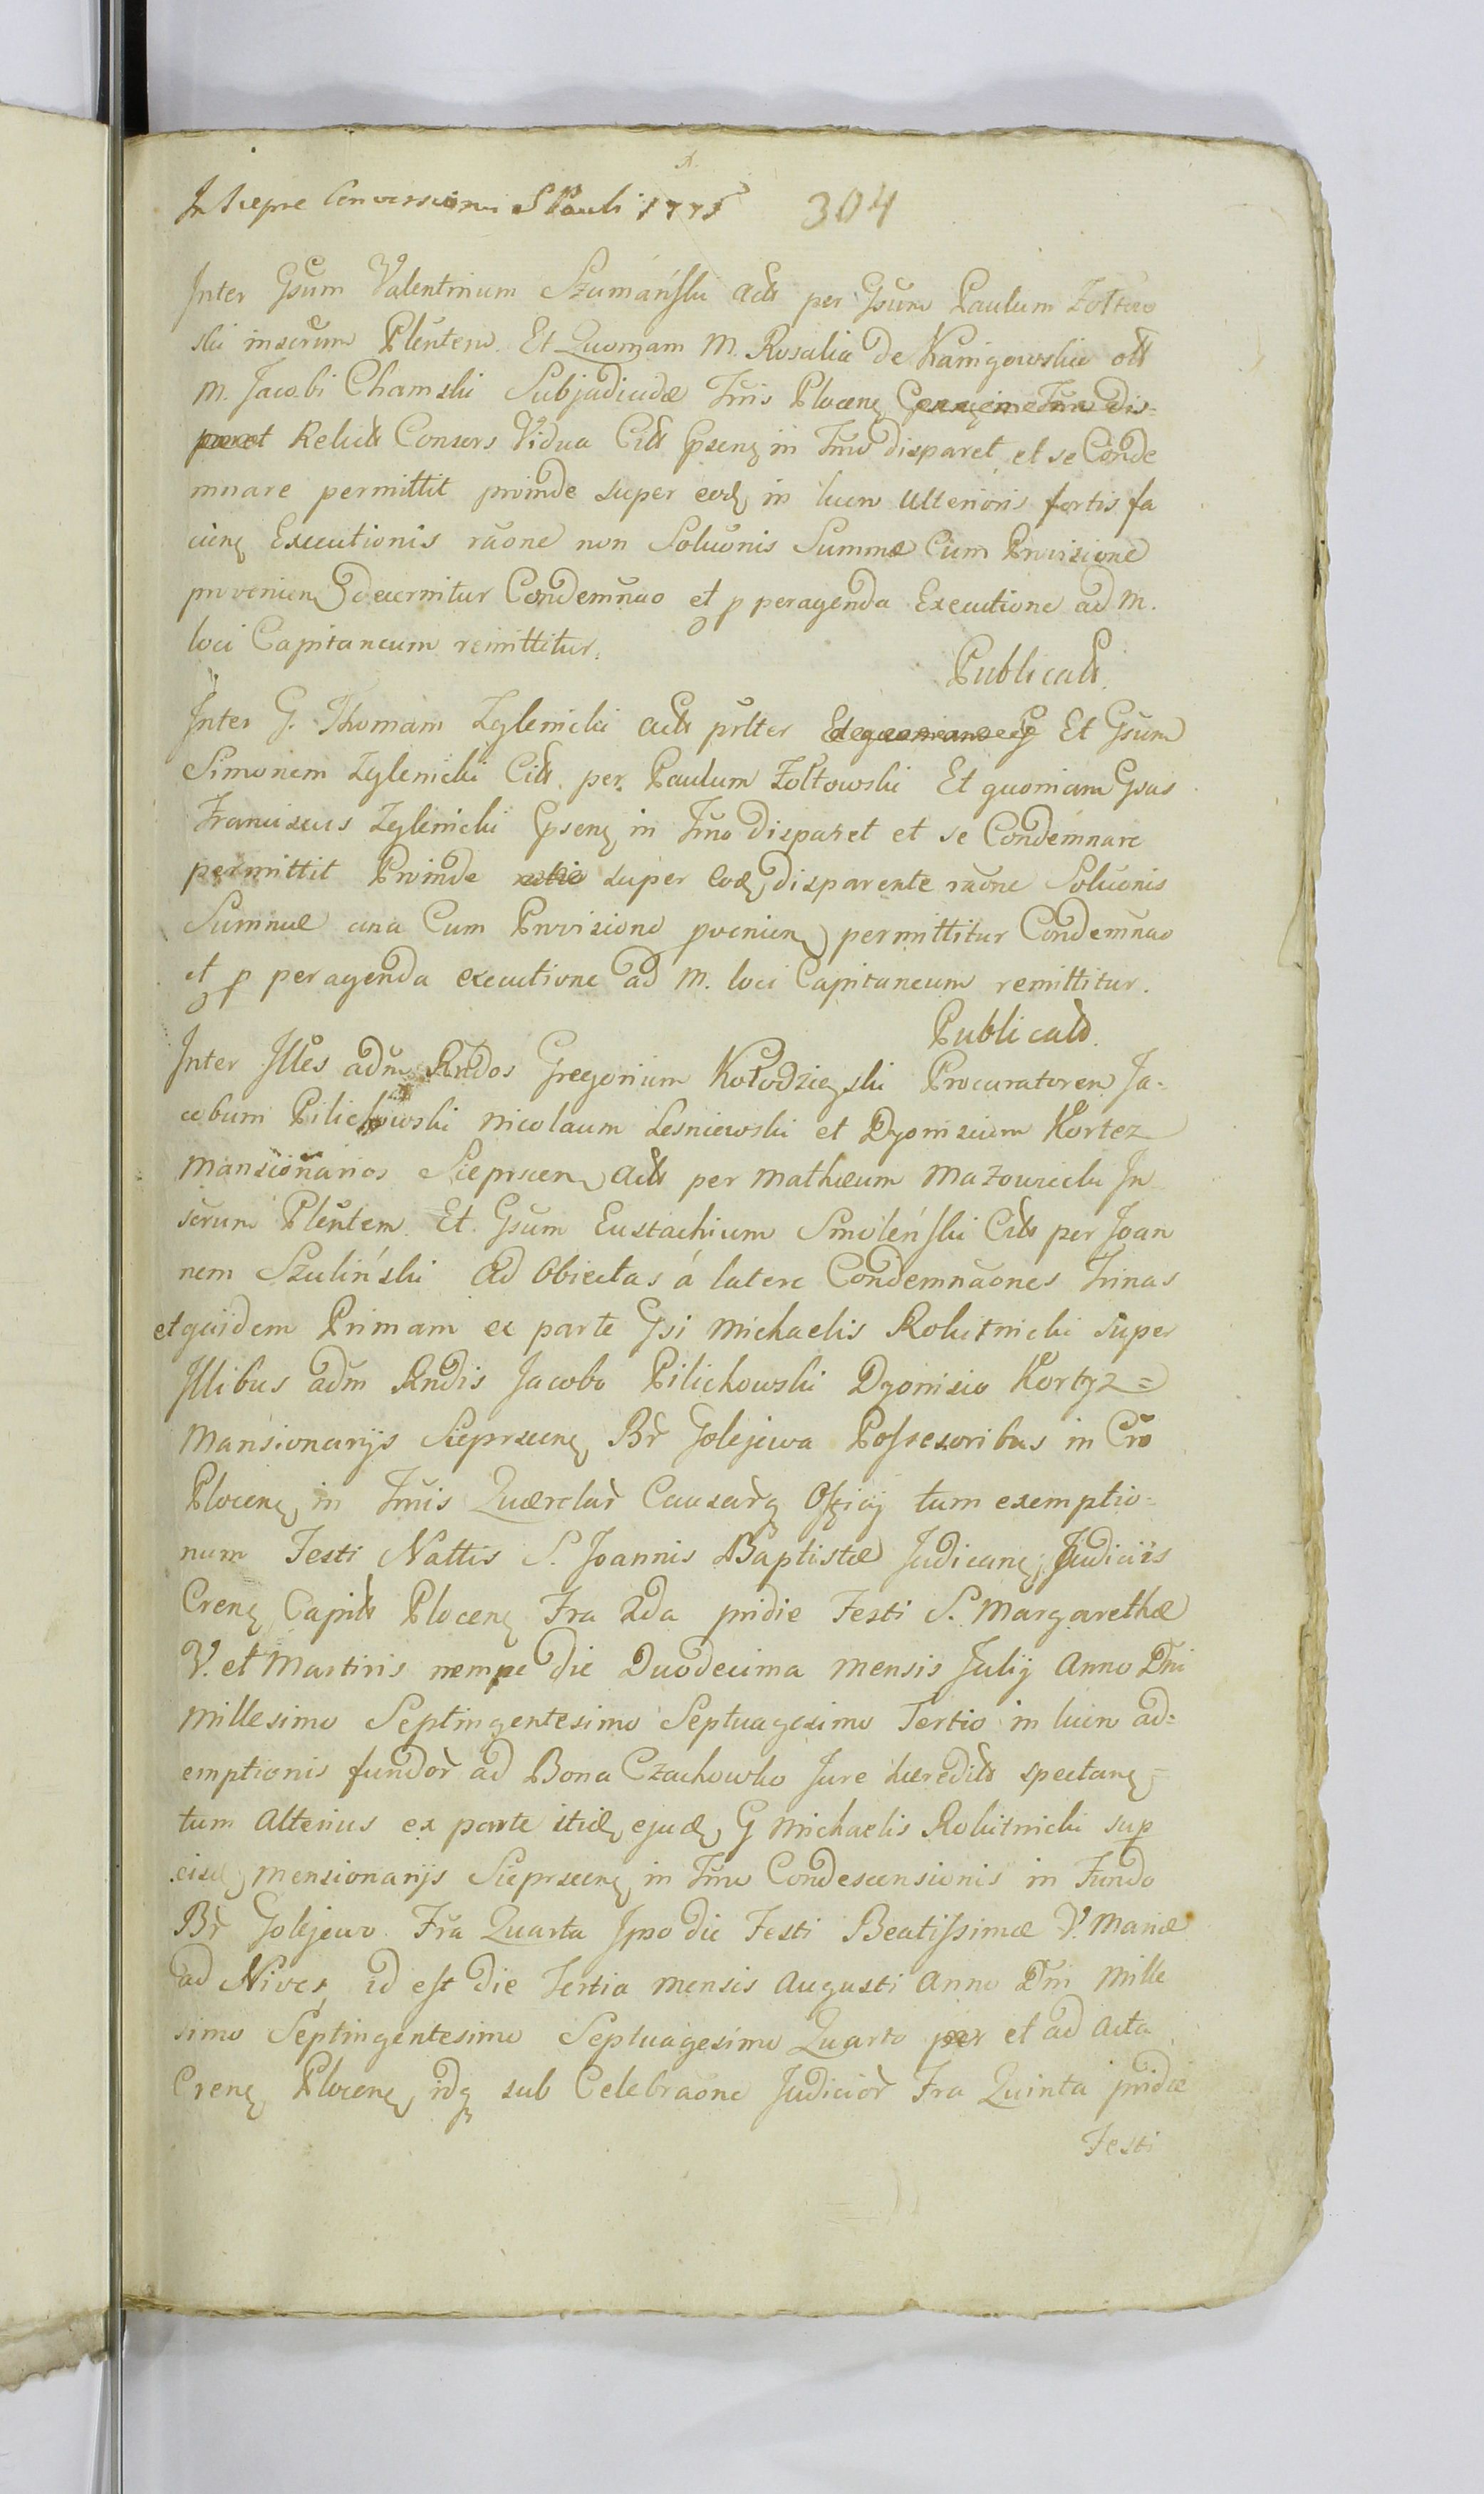 A.
In Siepre Conversionis S Pauli 1775 304
Inter Gsum Valentinum Szumański Acts per Gsum Paulum Zołtow
ski inserum Plentem. Et Quoniam M. Rosalia de Kanigowskie olt
M. Jacobi Chamski Subjudicidæ Trnis Plocenę Gpsenę in Trno dis=
paret Relicts Consors Vidua Cits Gpsenę in Trno disparet et se Conde
mnare permittit proinde super eadę in lucro Ulterioris fortis fa
cienę Executionis raone non Soluonis Summæ Cum Provisione
provenienę decernitur Condemnao et p peragenda Executione ad M.
loci Capitaneum remittitur.
Publicats.
Inter G. Thomam Zglenicki Acts prlter Et quoniam Et Gsum
Simonem Zglenicki Cits. per Paulum Zołtowski Et quoniam Gsus
Franciscus Zglenicki Gpsenę in Trno disparet et se Condemnare
permittit Proinde super eodę disparente raone Soluonis
Summæ una Cum Provisione pvenienę permittitur Condemnao
et p peragenda executione ad M. loci Capitaneum remittitur.
Publicats.
Inter Illes adm Rndos Gregorium Kołodzieyski Procuratorem Ja=
cobum Pilichowski Nicolaum Lesniewski et Dyonisium Kortez
Mansionarios Sieprscenę Acts per Mathæum Mazowiecki In
serum Plentem. Et Gsum Eustachium Smoleński Cits per Joan
nem Szuliński Ad Obiectas á latere Condemnaones Trinas
et quidem Primam ex parte Gsi Michaelis Rokitnicki super
Illibus adm Rndis Jacobo Pilichowski Dyonisio Kortyz=
Mansionarijs Sieprscenę Br Golejewa Possesoribus in Cro
Plocenę in Trnis Quærelar Causarq Officij tum exemptio=
num Festi Nattis S. Joannis Baptistæ Judicanę, Judiciis
Crenę Capits Plocenę Fra 2da pridie Festi S. Margarethæ
V. et Martiris nempe die Duodecima Mensis Julij Anno Dni
Millesimo Septingentesimo Septuagesimo Tertio in lucro ad=
emptionis fundor ad Bona Czachowko Jure hæredits spectanę=
tum Alterius ex parte itidę ejudę G Michaelis Rokitnicki sup
eisdę Mensionarijs Sieprscenę in Trno Condescensionis in Fundo
Br Golejewo Fra Quarta Ipso die Festi Beatissimæ V. Mariæ
ad Nives, id est die Tertia Mensis Augusti Anno Dni Mille
simo Septingentesimo Septuagesimo Quarto per et ad Acta
Crenę Plocenę idq sub Celebraone Judicior Fra Quinta pridie
Festi